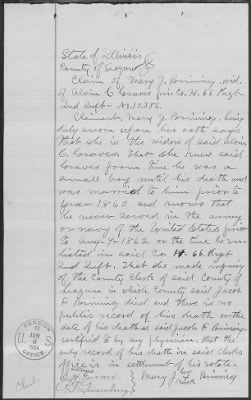 State of Illinois
County of
Claim of Mary J. Brining, wid.
of Alvin C. Graves Co. H. 66 Regt
Ind Inft - No. 10386.
Claimant, Mary J. Brining, being
duly sworn upon her oath says
that she is the widow of said
C. Graves. That she knew said
Graves from time he was a
small boy until his death and
was married to him prior to
year 1860 and knows that
he never served in the army
or navy of the United States prior
to Aug 9-1862 or the time he en-
listed in said Co H. 66 Regt
Ind Inft. That she made inquiry
of the County Clerk of said County of
in which County said Jacob
F Brining died and there is no
public record of his death or the
date of his death or said Jacob F Brining,
certified to by any physician, that the
only record of his death in said clerks
office is in settlement of his estate.
her
Mary J Brining
mark
PENSION
U S
JUN
OFFICE